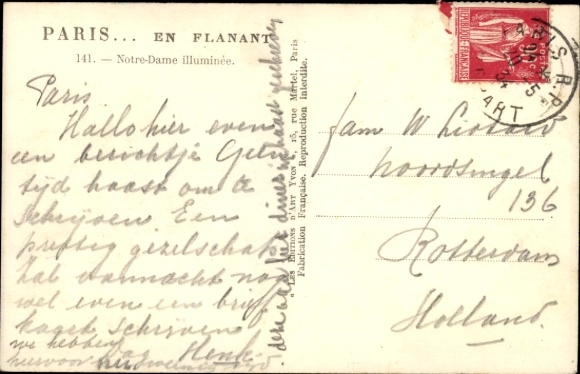 PARIS... EN FLANANT
141. — Notre-Dame illuminée.
Paris
Hallo hier even
een berichtje Geen
tijd haast om te
Schrijven Een
prettig gezelschap
Zal vannacht nog
wel even een brief
kaart Schrijven
we hebben
hiervoor
Henk
"LES ÉDITIONS D'ART YVON", 15, rue Martel, Paris
Fabrication Française. Reproduction interdite.
deze
diner
haast
POSTES
RÉPUBLIQUE FRANÇAISE
PARIS R.P.
DÉPART
fam W
Noordsingel
136
Rotterdam
Holland.